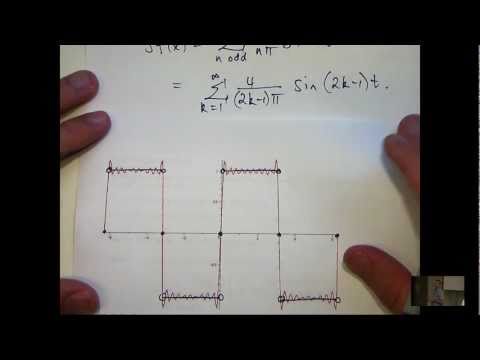 Sf(x) = Σ n odd nπ
= ∞ Σ k=1 4 / (2k-1)π sin (2k-1)t.